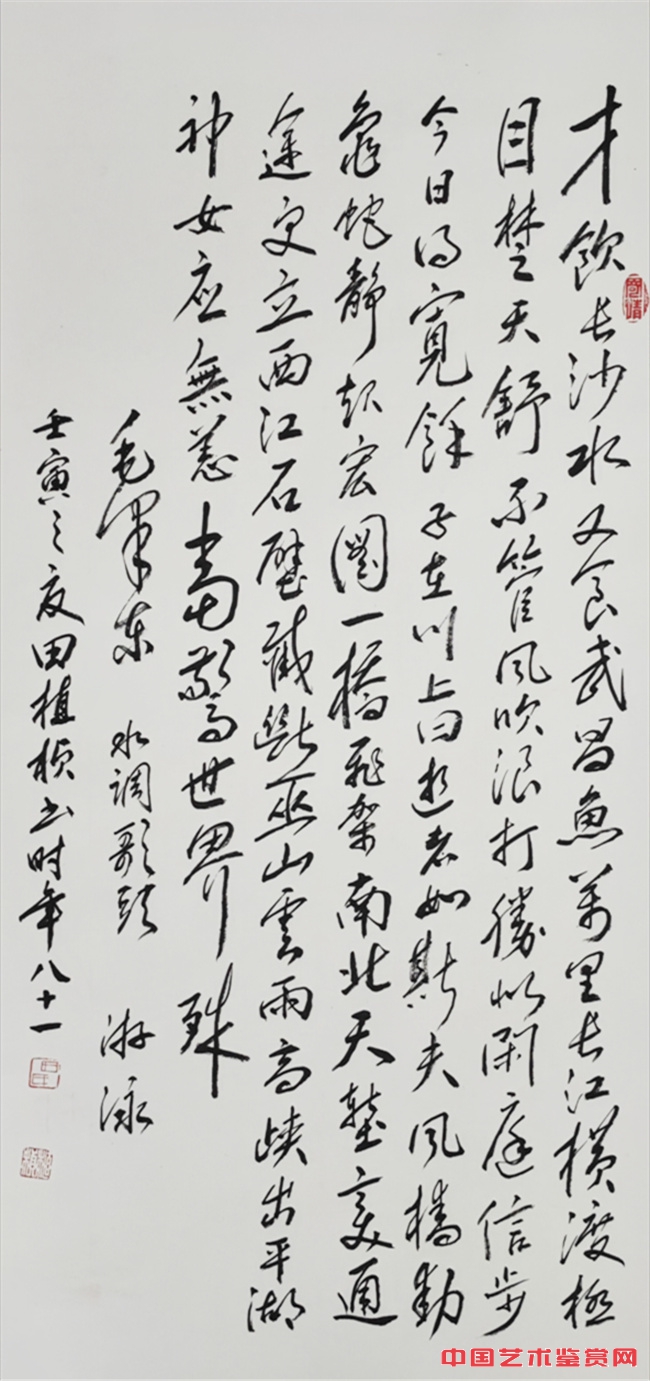 才飲长沙水又食武昌魚萬里长江横渡極
目楚天舒不管风吹浪打勝似闲庭信步
今日得寬餘子在川上曰逝者如斯夫风樯動
龜蛇靜起宏圖一橋飛架南北天塹变通
途更立西江石壁截斷巫山雲雨高峡出平湖
神女应無恙當驚世界殊
毛澤东 水调歌頭 游泳
壬寅之夏田植桢书时年八十一
中国艺术鉴赏网